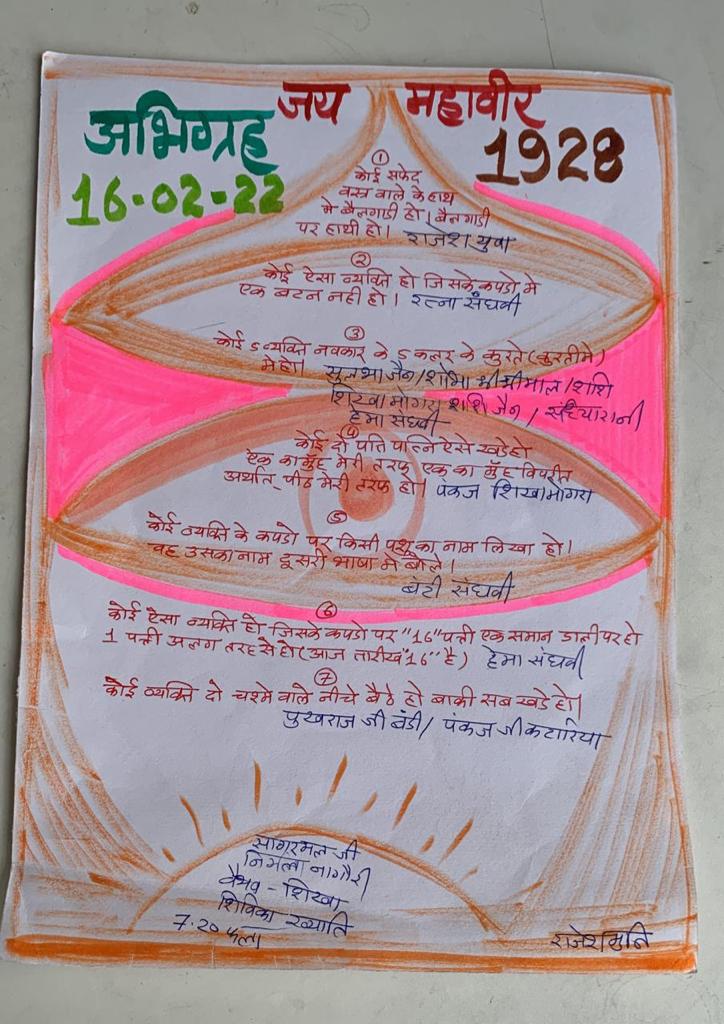 जय महावीर
अभिग्रह
1928
16-02-22
①
कोई सफेद
वस्त्र वाले के हाथ
मे बैलगाडी हो। बैलगाडी
पर हाथी हो। राजेश युवा
②
कोई ऐसा व्यक्ति हो जिसके कपडो मे
एक बटन नही हो। रत्ना संघवी
③
कोई 5 व्यक्ति नवकार के 5 कलर के कुरते (कुरतीमे)
मे हो। सुलभा जैन/शोभा श्री श्रीमाल/शशि
शिखा मोगरा शशि जैन / संध्यारानी
हेमा संघवी
④
कोई दो पति पत्नि ऐसे खडे हो
एक का मुँह मेरी तरफ एक का मुँह विपरीत
अर्थात् पीठ मेरी तरफ हो। पंकज शिखा मोगरा
⑤
कोई व्यक्ति के कपडो पर किसी पशु का नाम लिखा हो।
वह उसका नाम दूसरी भाषा मे बोले।
बंटी संघवी
⑥
कोई ऐसा व्यक्ति हो जिसके कपडो पर "16" पत्ती एक समान डाली पर हो
1 पत्ती अलग तरह से हो (आज तारीख "16" है) हेमा संघवी
⑦
कोई व्यक्ति दो चश्मे वाले नीचे बैठे हो बाकी सब खडे हो।
पुखराज जी बंडी/ पंकज जी कटारिया
सागरमल जी
निर्मला नागौरी
वैभव - शिखा
शिविका ख्याति
7.20 फला
राजेशमुनि